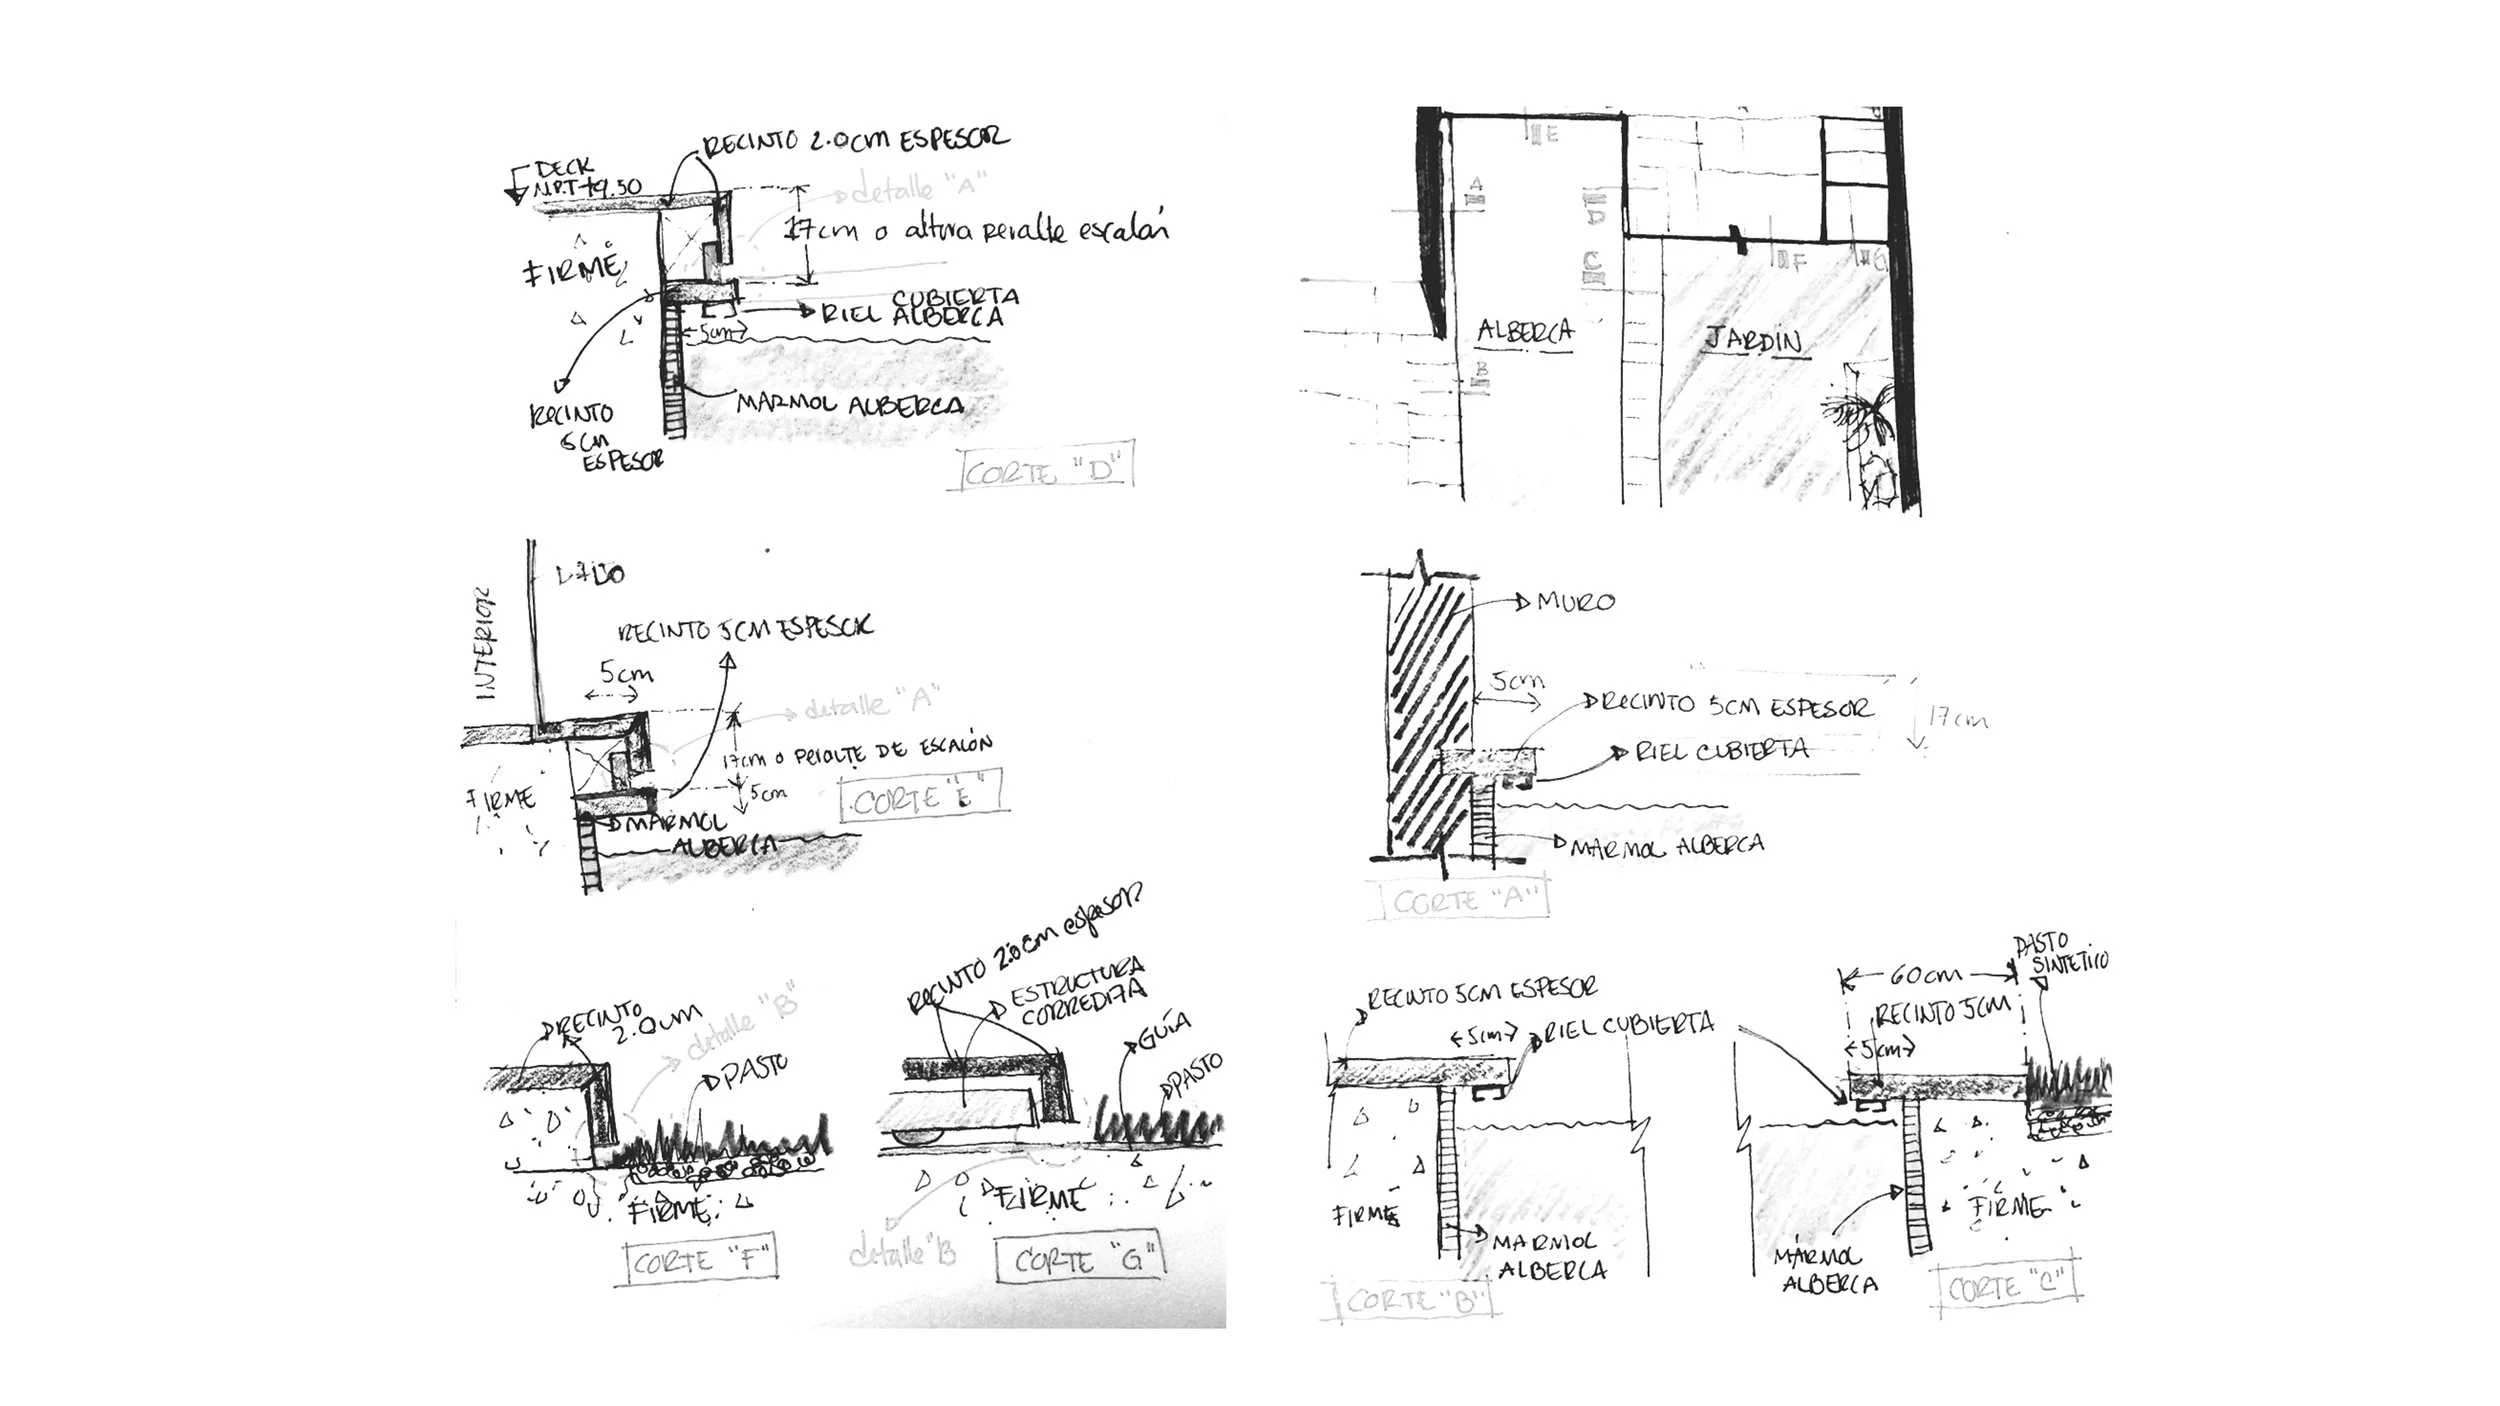 RECINTO 2.0cm ESPESOR
DECK
N.P.T +9.50
detalle "A"
17cm o altura peralte escalón
FIRME
CUBIERTA
RIEL ALBERCA
5cm
MARMOL ALBERCA
RECINTO
5CM
ESPESOR
CORTE "D"
E
A
D
C
F
G
ALBERCA
JARDIN
B
INTERIOR
RECINTO 5CM ESPESOR
5cm
detalle "A"
17cm o PERALTE DE ESCALÓN
5cm
FIRME
MARMOL
ALBERCA
CORTE "E"
MURO
5cm
RECINTO 5CM ESPESOR
17cm
RIEL CUBIERTA
MARMOL ALBERCA
CORTE "A"
RECINTO
2.0cm
detalle "B"
PASTO
FIRME
CORTE "F"
RECINTO 2.0cm espesor
ESTRUCTURA
CORREDIZA
GUÍA
PASTO
FIRME
detalle "B
CORTE "G"
RECINTO 5CM ESPESOR
5cm
RIEL CUBIERTA
FIRME
MARMOL
ALBERCA
CORTE "B"
PASTO
SINTETICO
60cm
RECINTO 5cm
5cm
FIRME
MÁRMOL
ALBERCA
CORTE "C"